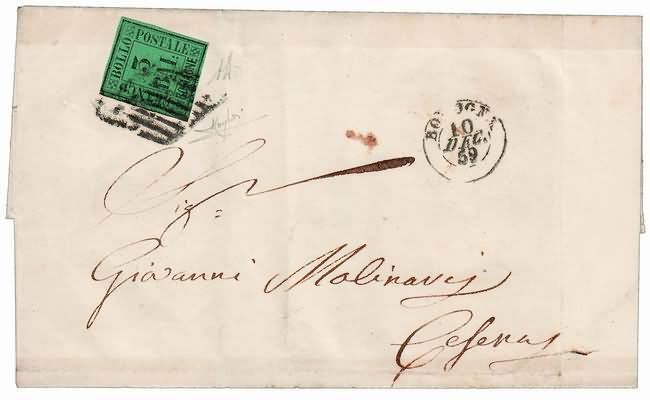 BOLLO
POSTALE
5
BAI.
BOLOGNA
10
DEC.
59
Sig.
Giovanni Molinari
Cesena